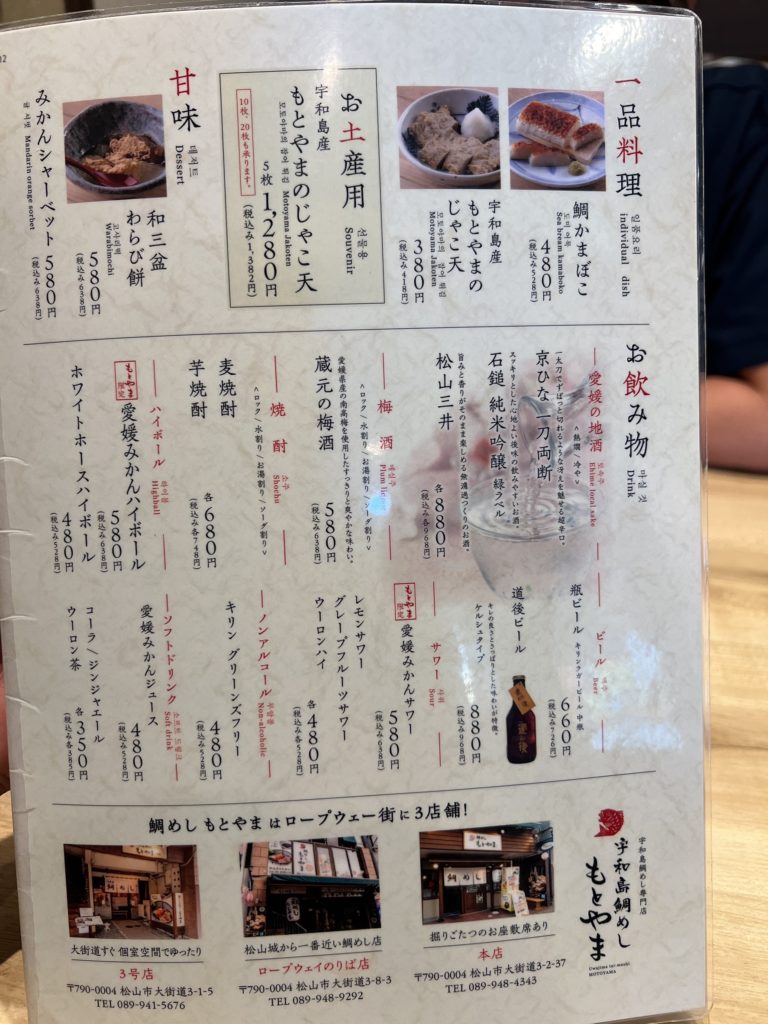 一品料理
일품요리
individual dish
鯛かまぼこ
도미 어묵
Sea bream kamaboko
480円
(税込み528円)
宇和島産
もとやまの
じゃこ天
Motoyama Jakoten
380円
(税込み418円)
お土産用
선물용
Souvenir
宇和島産
もとやまのじゃこ天
Motoyama Jakoten
5枚 1,280円
(税込み1,382円)
10枚、20枚も承ります。
甘味
데저트
Dessert
和三盆
わらび餅
고사리떡
Warabimochi
580円
(税込み638円)
みかんシャーベット 580円
귤 셔벗 Mandarin orange sorbet
(税込み638円)
お飲み物
마실 것
Drink
愛媛の地酒
토속주
Ehime local sake
<熱燗/冷や>
京ひな 一刀両断
一太刀ですぱっと切れるような冴えを魅せる超辛口。
石鎚 純米吟醸 緑ラベル
スッキリとした心地よい後味の飲みやすいお酒。
松山三井
旨みと香りがそのまま楽しめる無濾過づくりのお酒。
各880円
(税込み各968円)
梅酒
매실주
Plum liquor
<ロック/水割り/お湯割り/ソーダ割り>
蔵元の梅酒
愛媛県産の南高梅を使用したすっきりと爽やかな味わい。
580円
(税込み638円)
焼酎
소주
Shochu
<ロック/水割り/お湯割り/ソーダ割り>
麦焼酎
芋焼酎
各680円
(税込み各748円)
ハイボール
하이볼
Highball
もとやま
限定
愛媛みかんハイボール
580円
(税込み638円)
ホワイトホースハイボール
480円
(税込み528円)
ビール
맥주
Beer
瓶ビール キリンラガービール 中瓶
660円
(税込み726円)
道後ビール
キレの良さとさっぱりとした味わいが特徴。
ケルシュタイプ
880円
(税込み968円)
サワー
사워
Sour
もとやま
限定
愛媛みかんサワー
580円
(税込み638円)
レモンサワー
グレープフルーツサワー
ウーロンハイ
各480円
(税込み各528円)
ノンアルコール
무알콜
Non-alcoholic
キリン グリーンズフリー
480円
(税込み528円)
ソフトドリンク
소프트 드링크
Soft drink
愛媛みかんジュース
480円
(税込み528円)
コーラ/ジンジャエール
ウーロン茶
各350円
(税込み各385円)
鯛めし もとやま はロープウェー街に3店舗!
宇和島鯛めし専門店
宇和島鯛めし
もとやま
Uwajima tai-meshi
MOTOYAMA
掘りごたつのお座敷席あり
本店
〒790-0004 松山市大街道3-2-37
TEL 089-948-4343
松山城から一番近い鯛めし店
ロープウェイのりば店
〒790-0004 松山市大街道3-8-3
TEL 089-948-9292
大街道すぐ 個室空間でゆったり
3号店
〒790-0004 松山市大街道3-1-5
TEL 089-941-5676